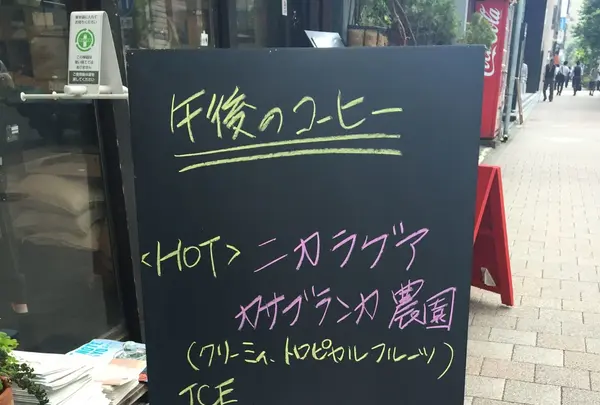 午後のコーヒー
<HOT> ニカラグア
カサブランカ農園
(クリーミィ、トロピカルフルーツ)
ICE
Coca-Cola